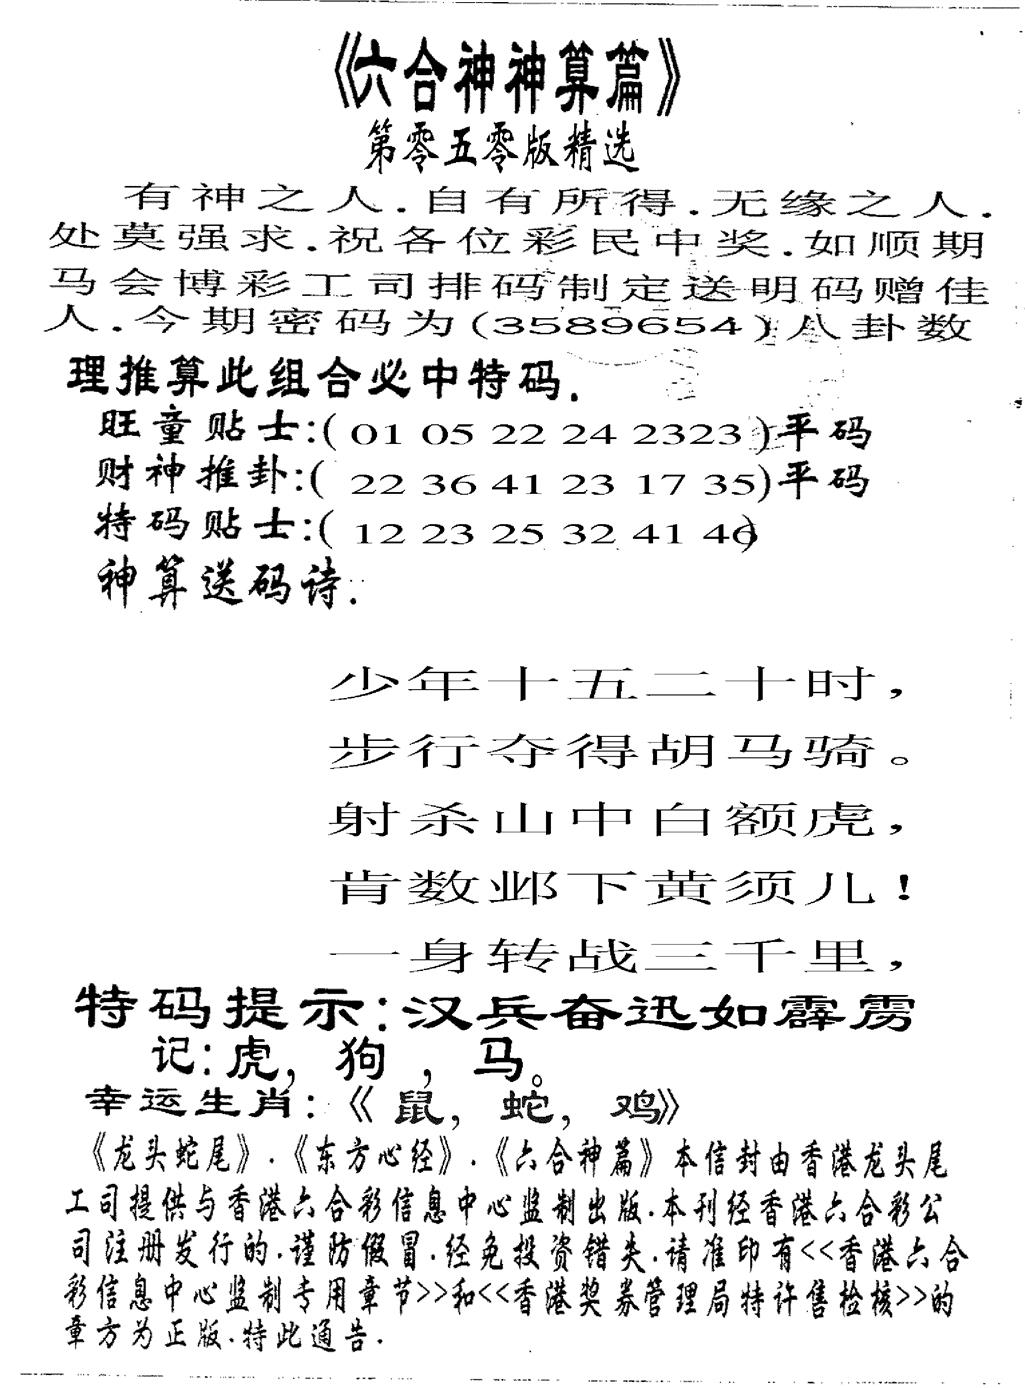 《六合神神算篇》
第零五零版精选
有神之人.自有所得.无缘之人.
处莫强求.祝各位彩民中奖.如顺期
马会博彩工司排码制定送明码赠佳
人.今期密码为(3589654)八卦数
理推算此组合必中特码.
旺童贴士:( 01 05 22 24 2323 )平码
财神推卦:( 22 36 41 23 17 35)平码
特码贴士:( 12 23 25 32 41 46)
神算送码诗.
少年十五二十时,
步行夺得胡马骑。
射杀山中白额虎,
肯数邺下黄须儿!
一身转战三千里,
特码提示:汉兵奋迅如霹雳
记:虎, 狗 , 马。
幸运生肖:《 鼠, 蛇, 鸡》
《龙头蛇尾》.《东方心经》.《六合神篇》本信封由香港龙头尾
工司提供与香港六合彩信息中心监制出版.本刊经香港六合彩公
司注册发行的.谨防假冒.经免投资错失.请准印有<<香港六合
彩信息中心监制专用章节>>和<<香港奖券管理局特许售检核>>的
章方为正版.特此通告.